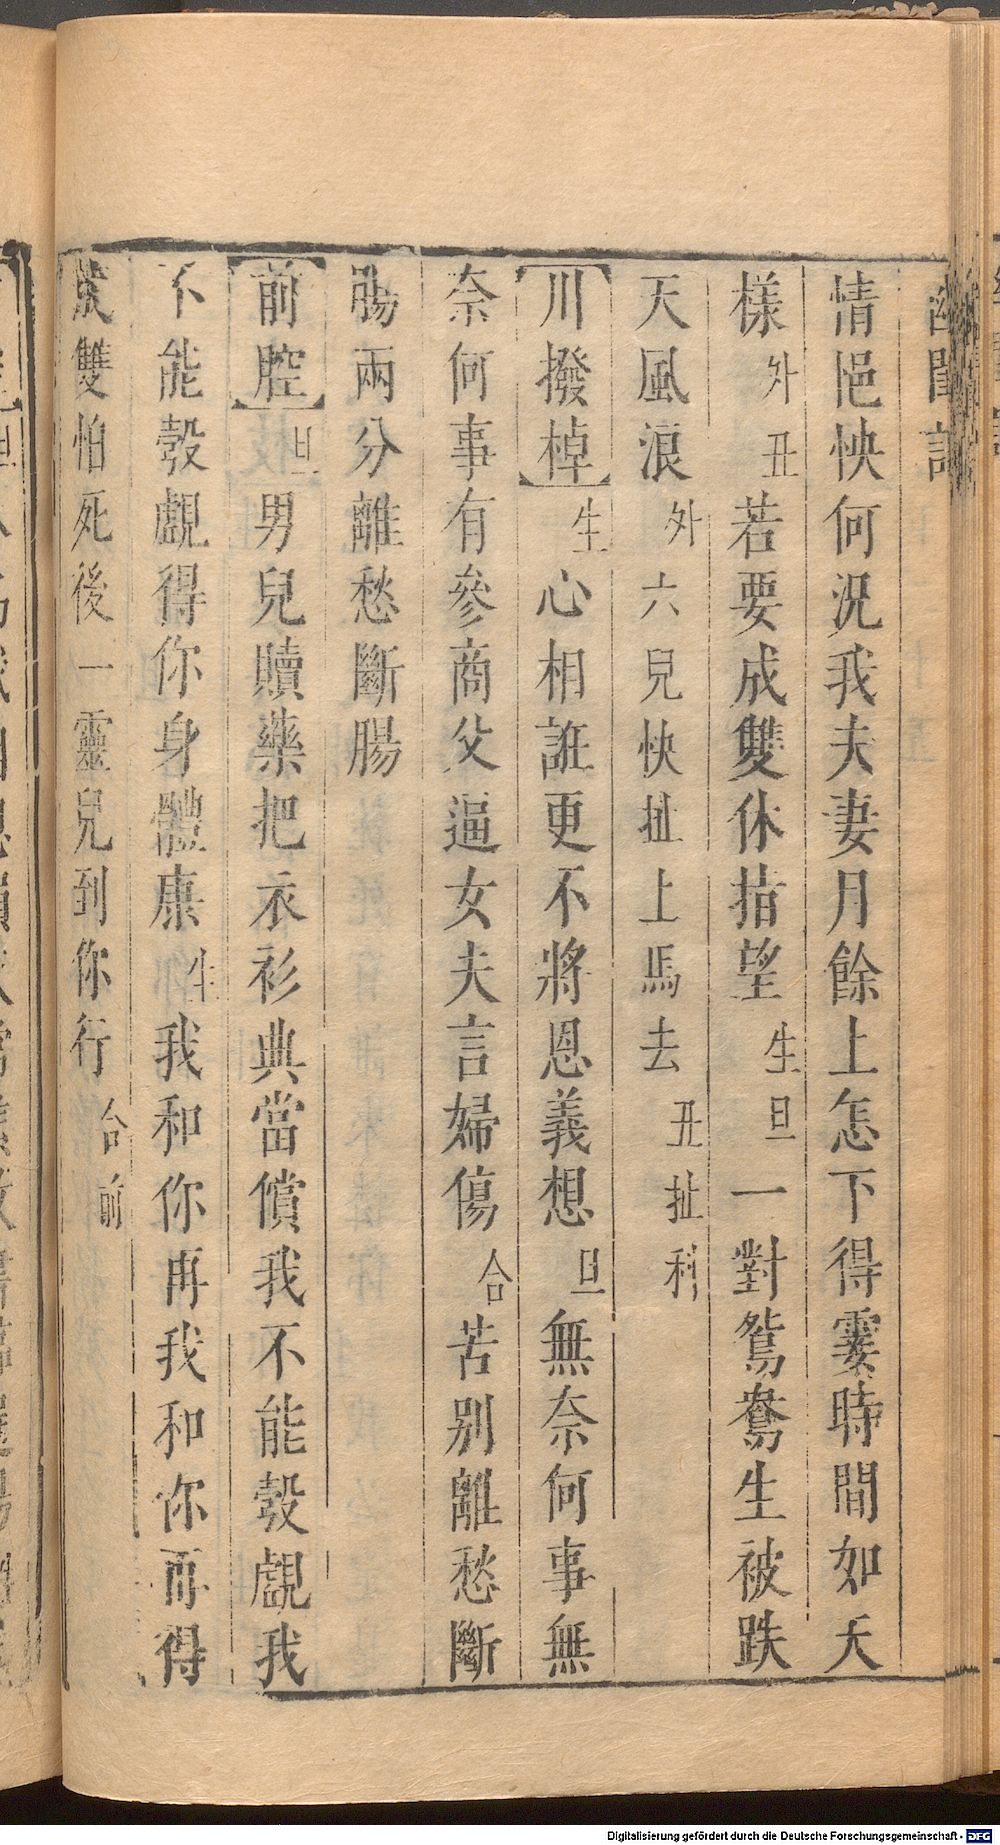 幽閨記
情悒怏何況我夫妻月餘上怎下得霎時間如天
樣外丑若要成雙休指望生旦一對鴛鴦生被跌
天風浪外六兒快扯上馬去丑扯科
川撥棹生心相誑更不將恩義想旦無奈何事無
奈何事有參商父逼女夫言婦傷合苦別離愁斷
腸兩分離愁斷腸
前腔旦男兒贖藥把衣衫典當償我不能彀覷我
不能彀覷得你身體康生我和你再我和你再得
成雙怕死後一靈兒到你行合前
Digitalisierung gefördert durch die Deutsche Forschungsgemeinschaft - DFG